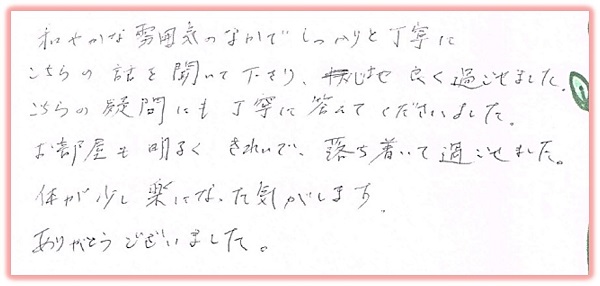 和やかな雰囲気のなかでじっくりと丁寧に
こちらの話を聞いて下さり、心地良く過ごせました。
こちらの疑問にも丁寧に答えてくださいました。
お部屋も明るくきれいで、落ち着いて過ごせました。
体が少し楽になった気がします。
ありがとうございました。